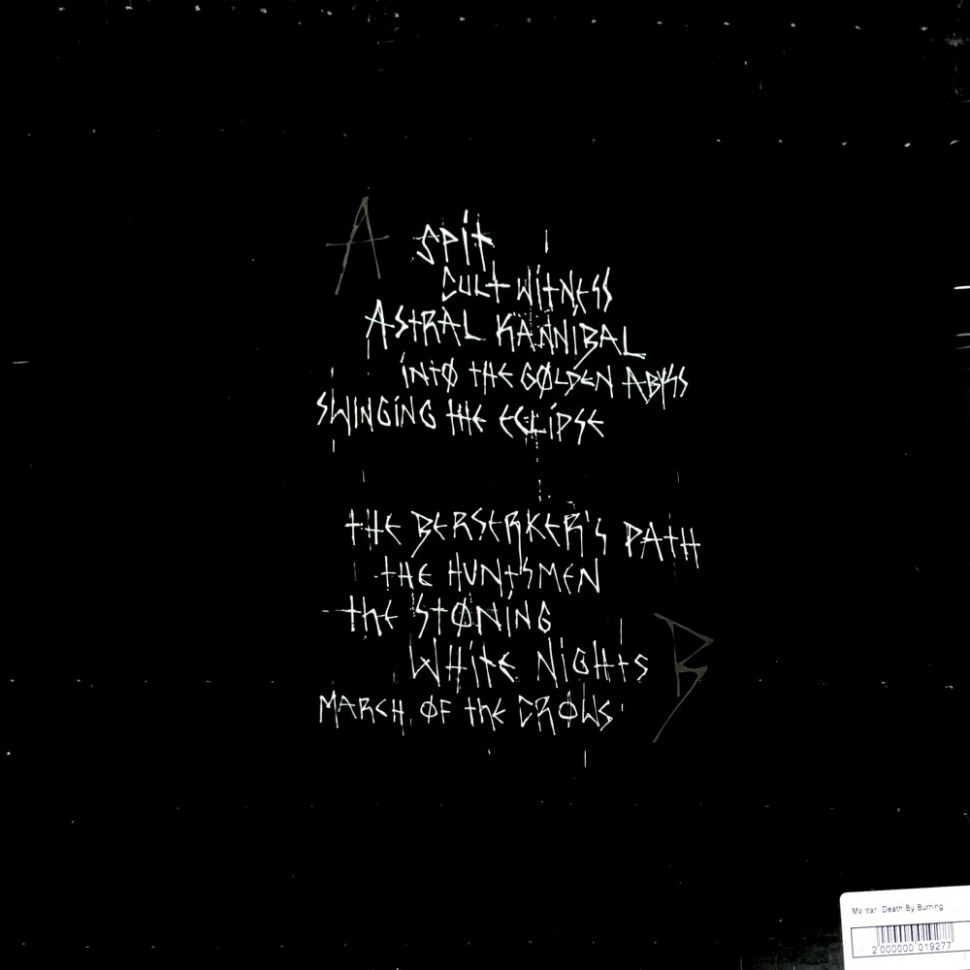 A
SPIT
CULT WITNESS
ASTRAL KANNIBAL
INTØ THE GØLDEN ABYSS
SWINGING THE ECLIPSE
THE BERSERKER'S PATH
THE HUNTSMEN
THE STØNING
WHITE NIGHTS
B
MARCH ØF THE CRØWS
Mantar: Death By Burning
2 000000 019277